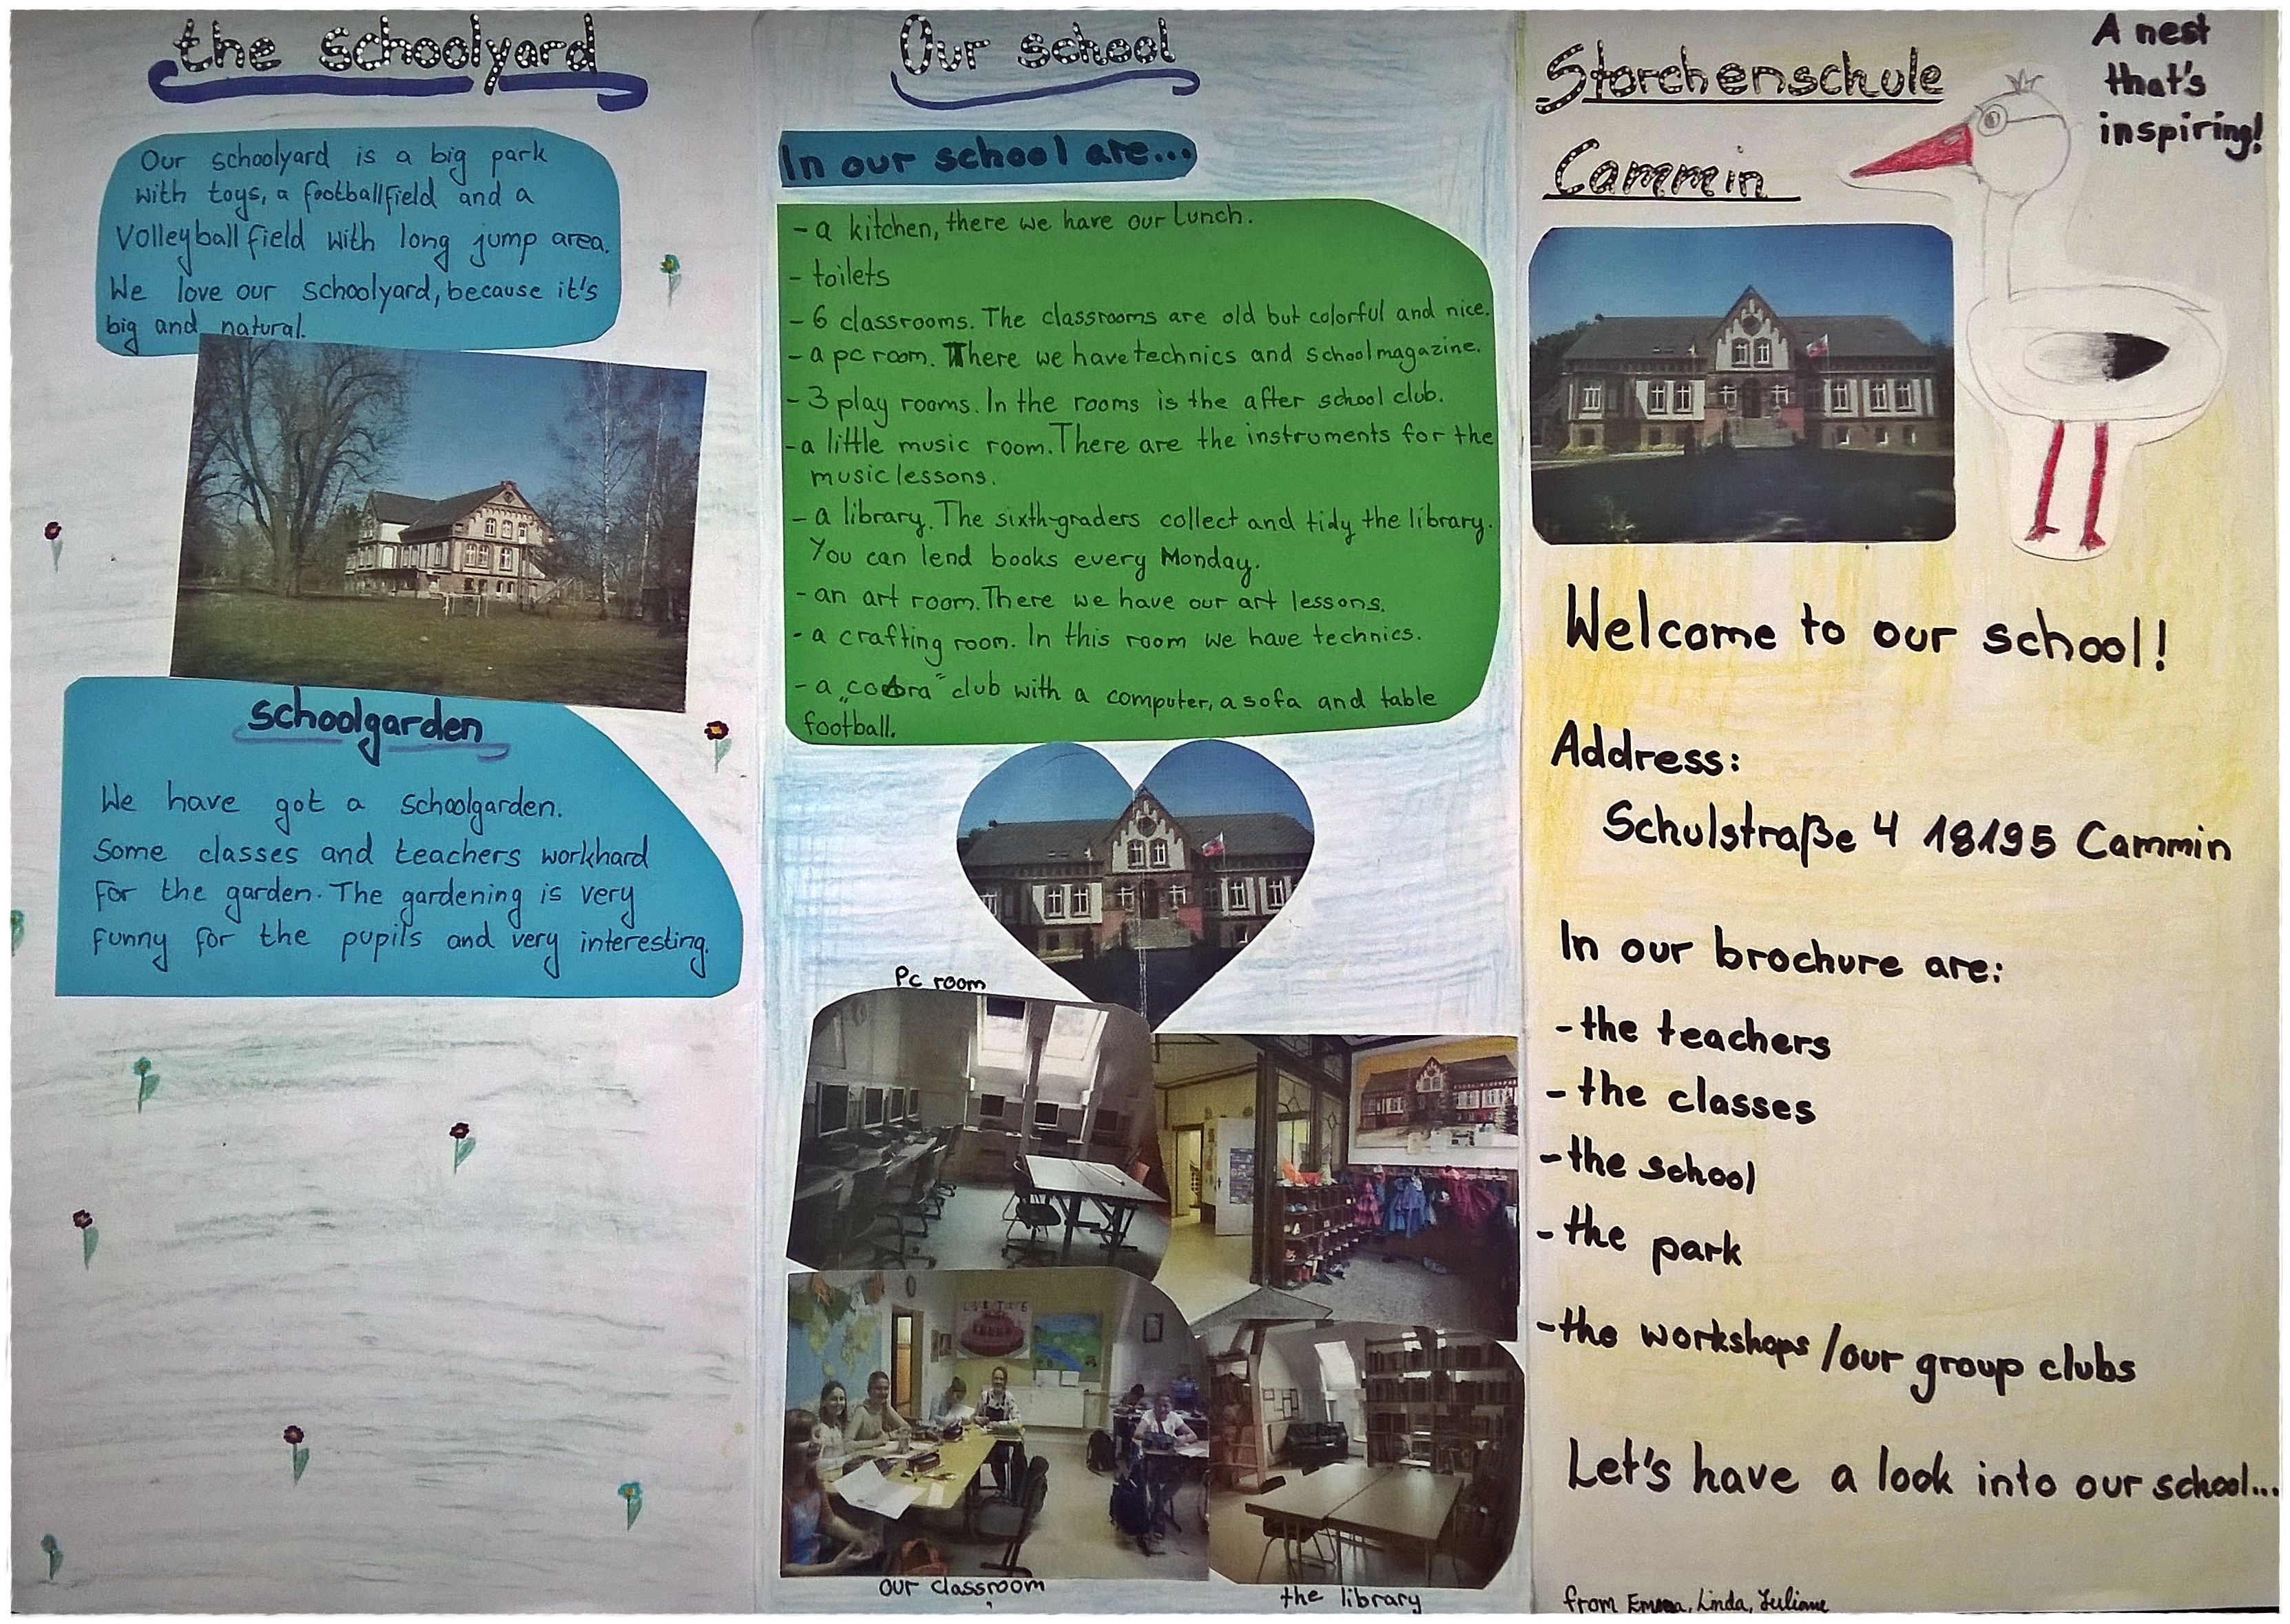 the schoolyard
Our schoolyard is a big park
with toys, a footballfield and a
Volleyballfield with long jump area.
We love our schoolyard, because it's
big and natural.
schoolgarden
We have got a schoolgarden.
Some classes and teachers workhard
for the garden. The gardening is very
funny for the pupils and very interesting.
Our school
In our school are...
- a kitchen, there we have our lunch.
- toilets
- 6 classrooms. The classrooms are old but colorful and nice.
- a pc room. There we have technics and schoolmagazine.
- 3 play rooms. In the rooms is the after school club.
- a little music room. There are the instruments for the
music lessons.
- a library. The sixth-graders collect and tidy the library.
You can lend books every Monday.
- an art room. There we have our art lessons.
- a crafting room. In this room we have technics.
- a „cobra" club with a computer, a sofa and table
football.
Pc room
our classroom
the library
Storchenschule
Cammin
A nest
that's
inspiring!
Welcome to our school!
Address:
Schulstraße 4 18195 Cammin
In our brochure are:
- the teachers
- the classes
- the school
- the park
- the workshops / our group clubs
Let's have a look into our school...
from Emma, Linda, Juliane